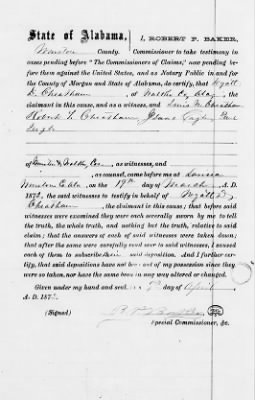 State of Alabama,
I, ROBERT P. BAKER,
Winston County. Commissioner to take testimony in
cases pending before "The Commissioners of Claims," now pending be-
fore them against the United States, and as Notary Public in and for
the County of Morgan and State of Alabama, do certify, that Wyatt
D. Cheatham, of Co, Ala, the
claimant in this cause, and as a witness, and Louis M. Cheatham
Robert L. Cheatham,
of Winston & Co as witnesses, and
, as counsel, came before me at
Winston Co Ala, on the 19th day of March A. D.
187 , the said witnesses to testify in behalf of Wyatt D.
Cheatham, the claimant in this cause; that before said
witnesses were examined they were each severally sworn by me to tell
the truth, the whole truth, and nothing but the truth, relative to said
claim; that the answers of each of said witnesses were taken down;
that after the same were carefully read over to said witnesses, I caused
each of them to subscribe their said deposition. And I further cer-
tify, that said depositions have not been out of my possession since they
were so taken, nor have the same been in any way altered or changed.
Given under my hand and seal, this day of April
A. D. 187
(Signed)
Special Commissioner, &c.